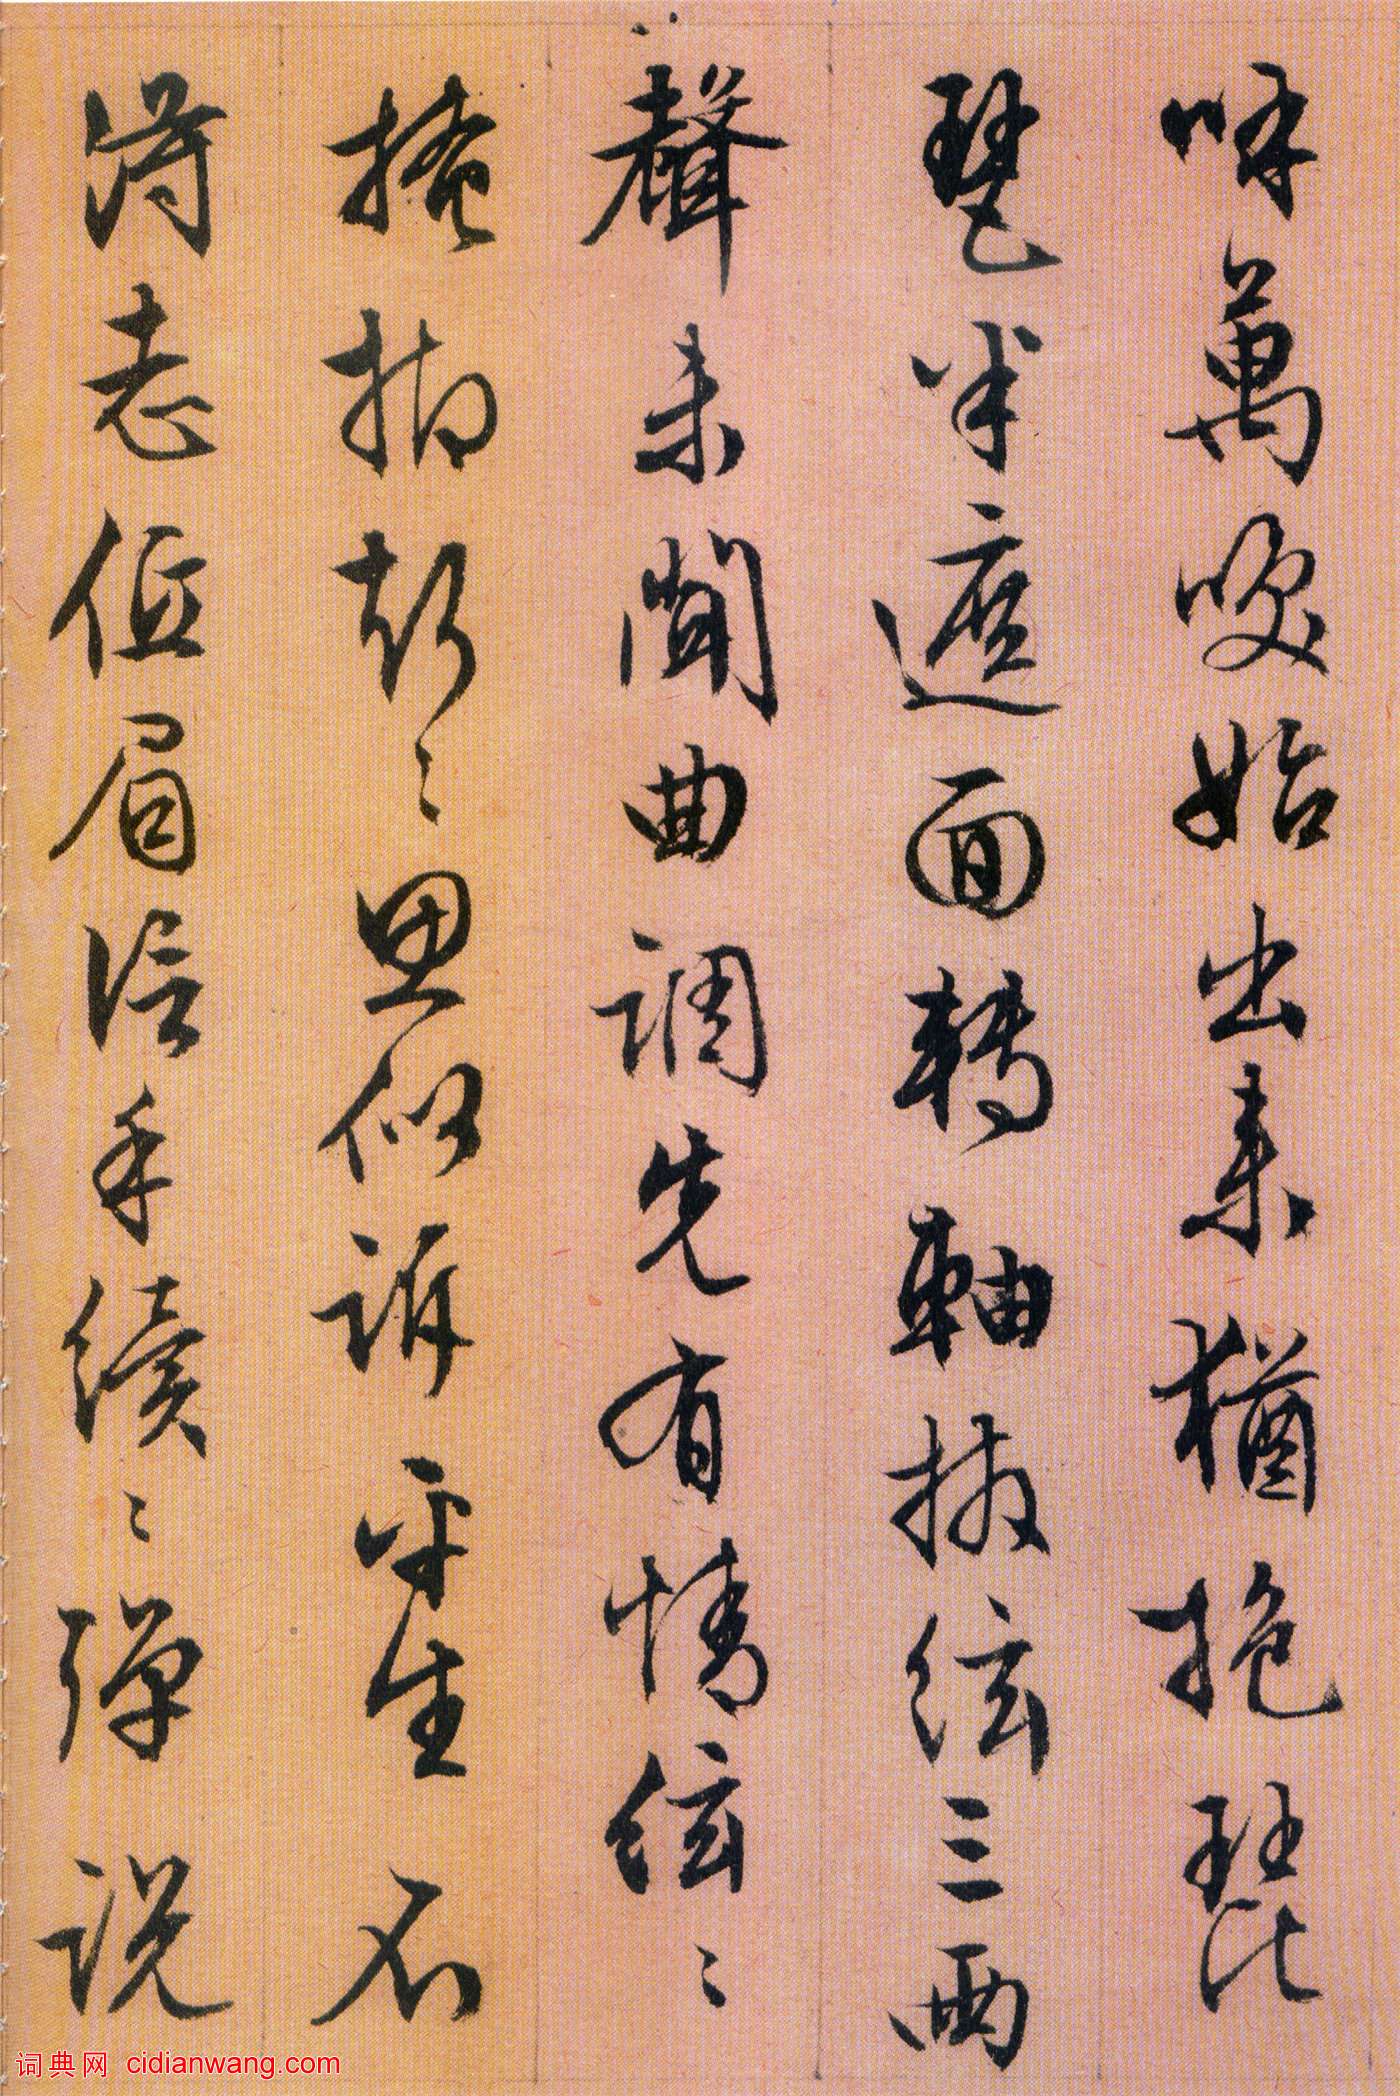 呼萬喚始出來猶抱琵
琶半遮面轉軸撥絃三兩
聲未聞曲調先有情絃〻
掩抑聲〻思似訴平生不
得志低眉信手續〻彈說
词典网 cidianwang.com